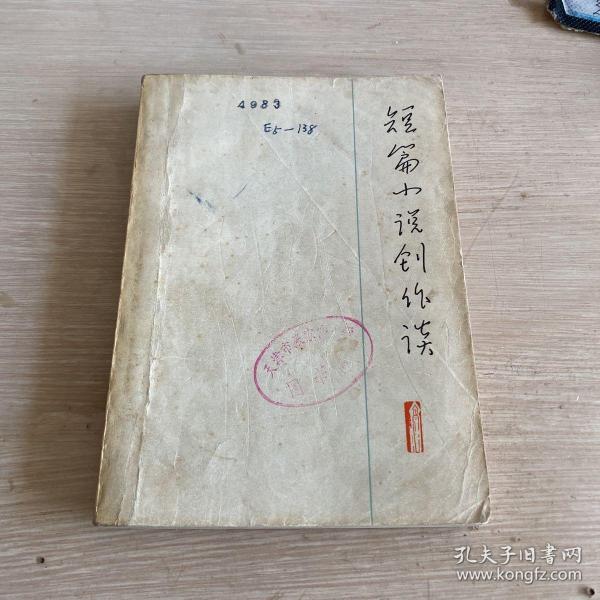 4983
E5—138
短篇小说创作谈
天津市
孔夫子旧书网
www.kongfz.com